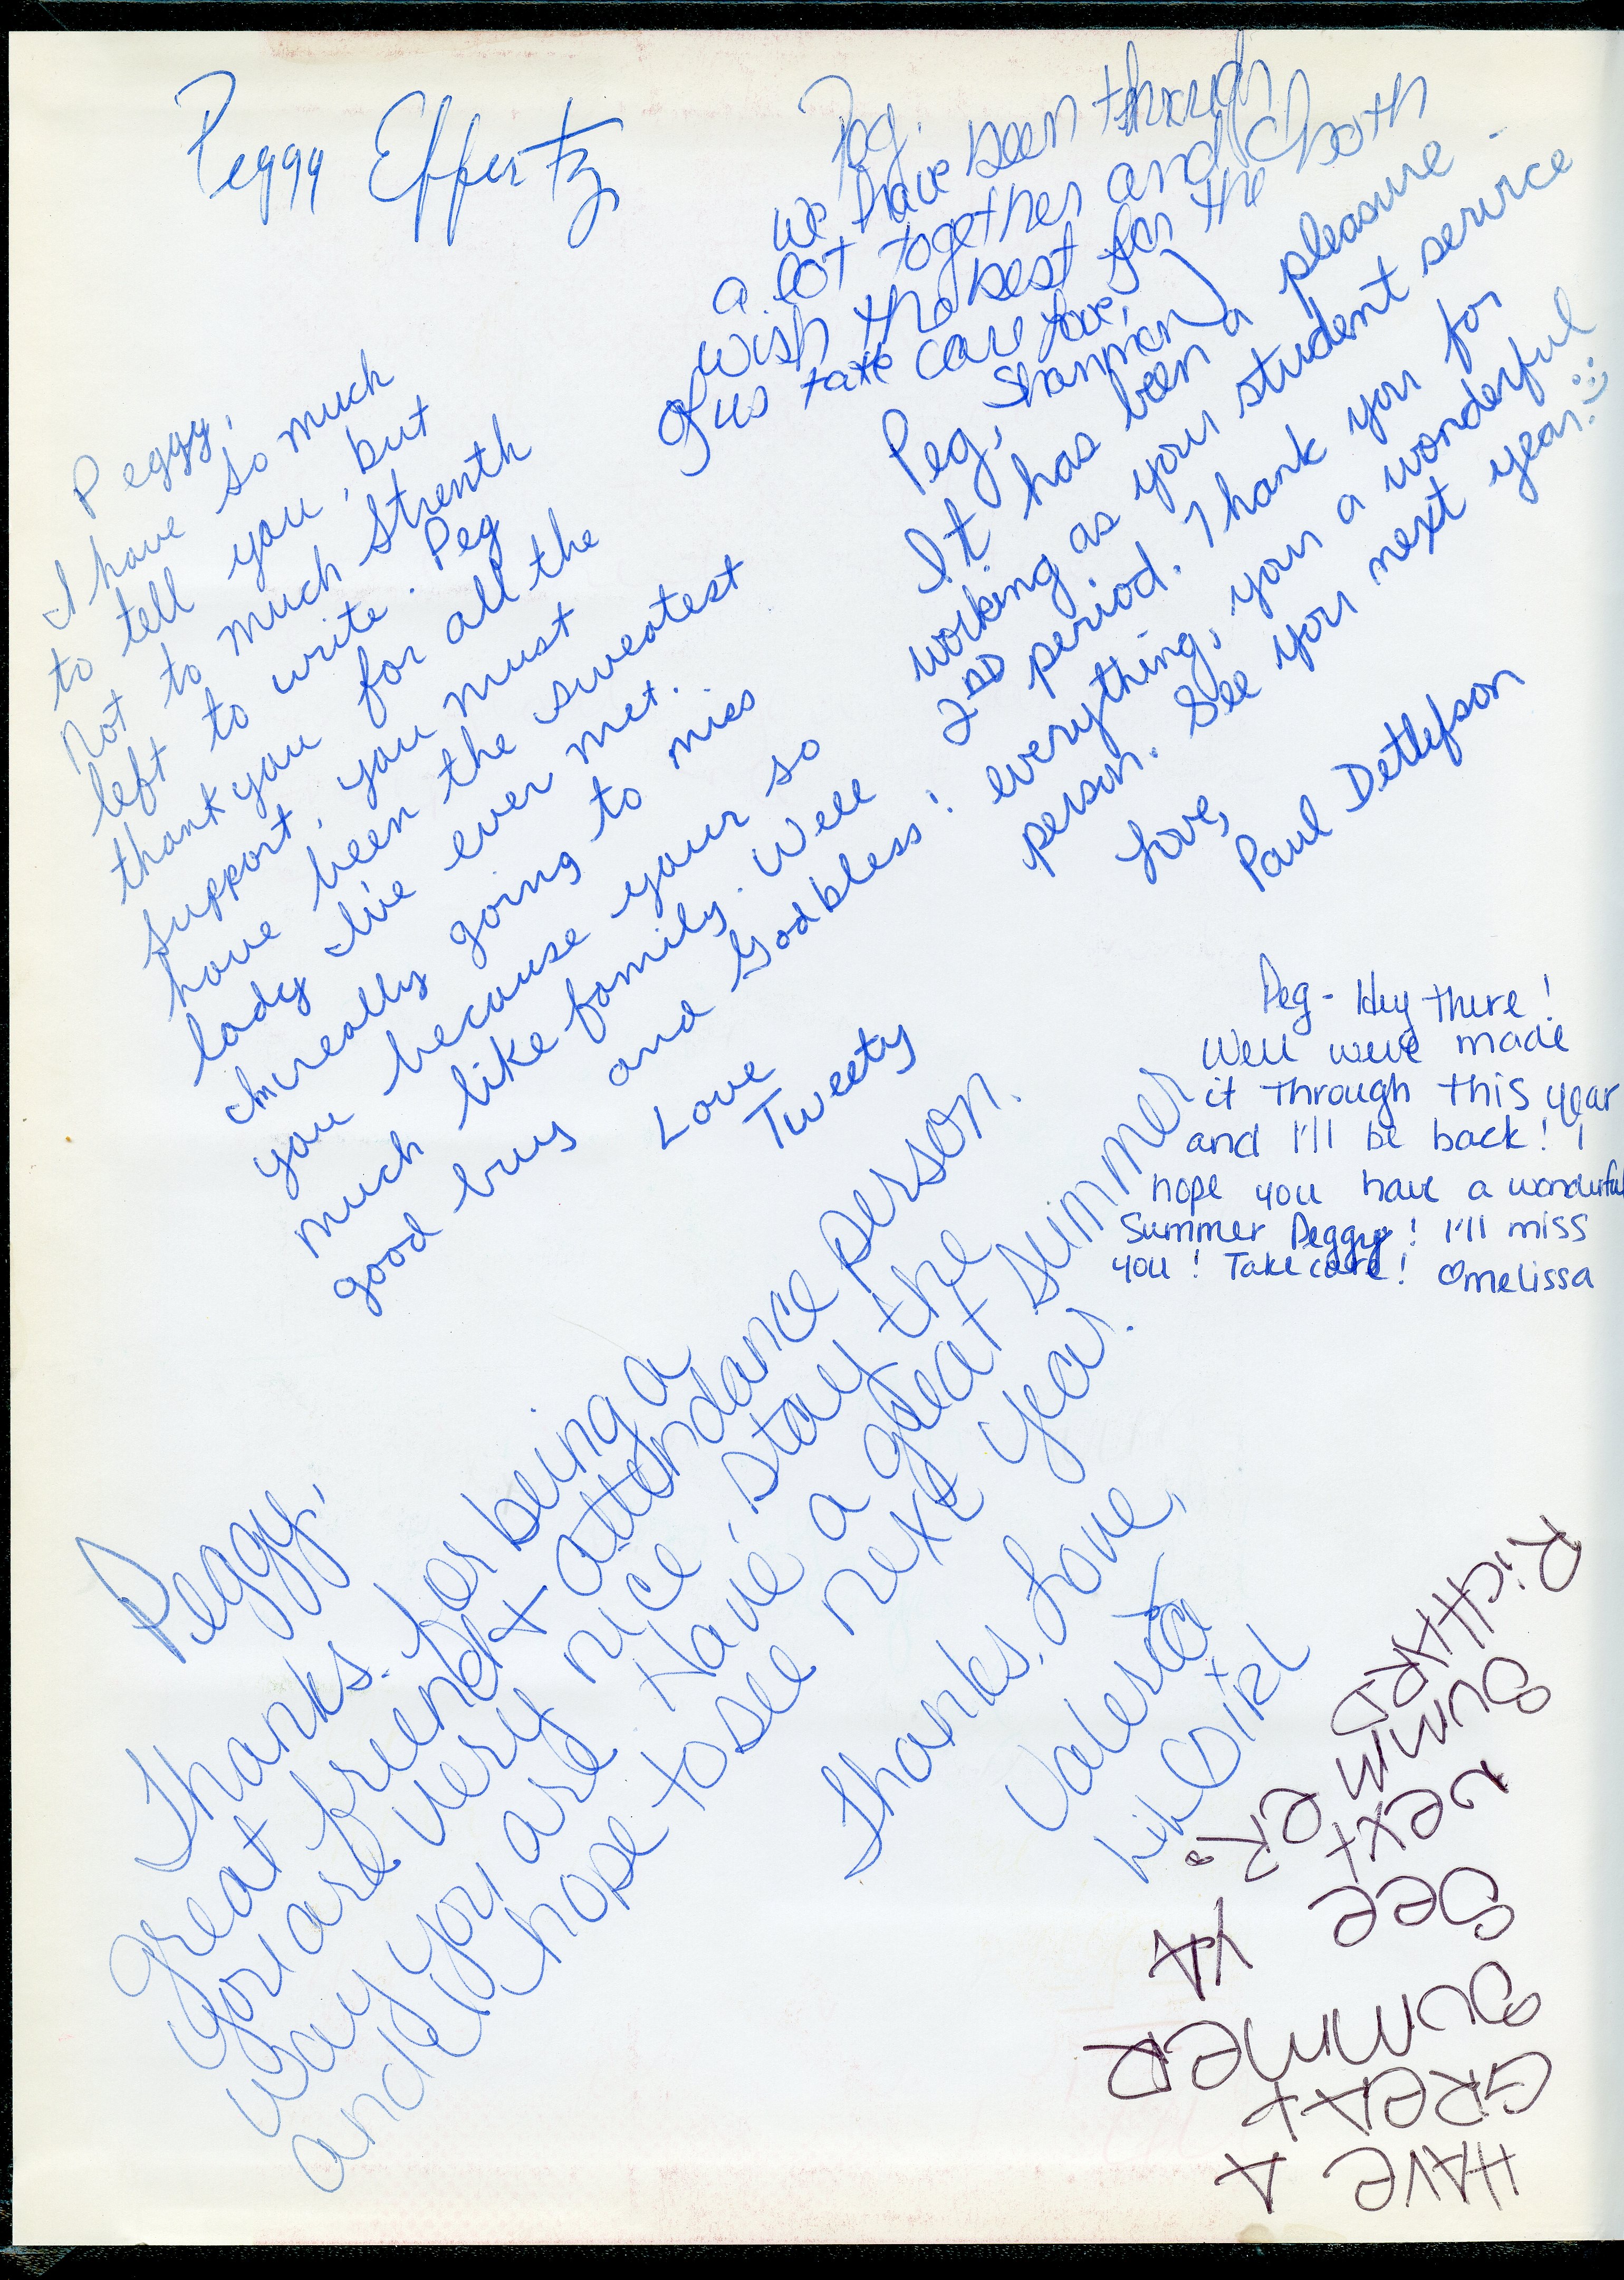 Peggy Effertz
Peg,
we have been through
a lot together and I
wish the best for the both
of us take care love,
Shannon
Peggy,
I have so much
to tell you, but
not to much strenth
left to write. Peg
thank you for all the
support, you must
have been the sweatest
lady I've ever met.
I'm really going to miss
you because your so
much like family. Well
good buy and Godbless!
Love
Tweety
Peg,
It has been a pleasure -
working as your student service
2ND period. Thank you for
everything, your a wonderful
person. See you next year. :)
Love,
Paul Detlefson
Peg - Hey there!
Well we've made
it through this year
and I'll be back! I
hope you have a wonderful
Summer Peggy! I'll miss
you! Take care! ♡ Melissa
Peggy,
Thanks for being a
great friend + attendance person.
You are very nice, stay the
way you are. Have a great summer
and I hope to see next year.
Thanks, Love,
Valerie
HAVE A
GREAT
SUMMER
SEE YA
NEXT
SUMMER.
RICHARD